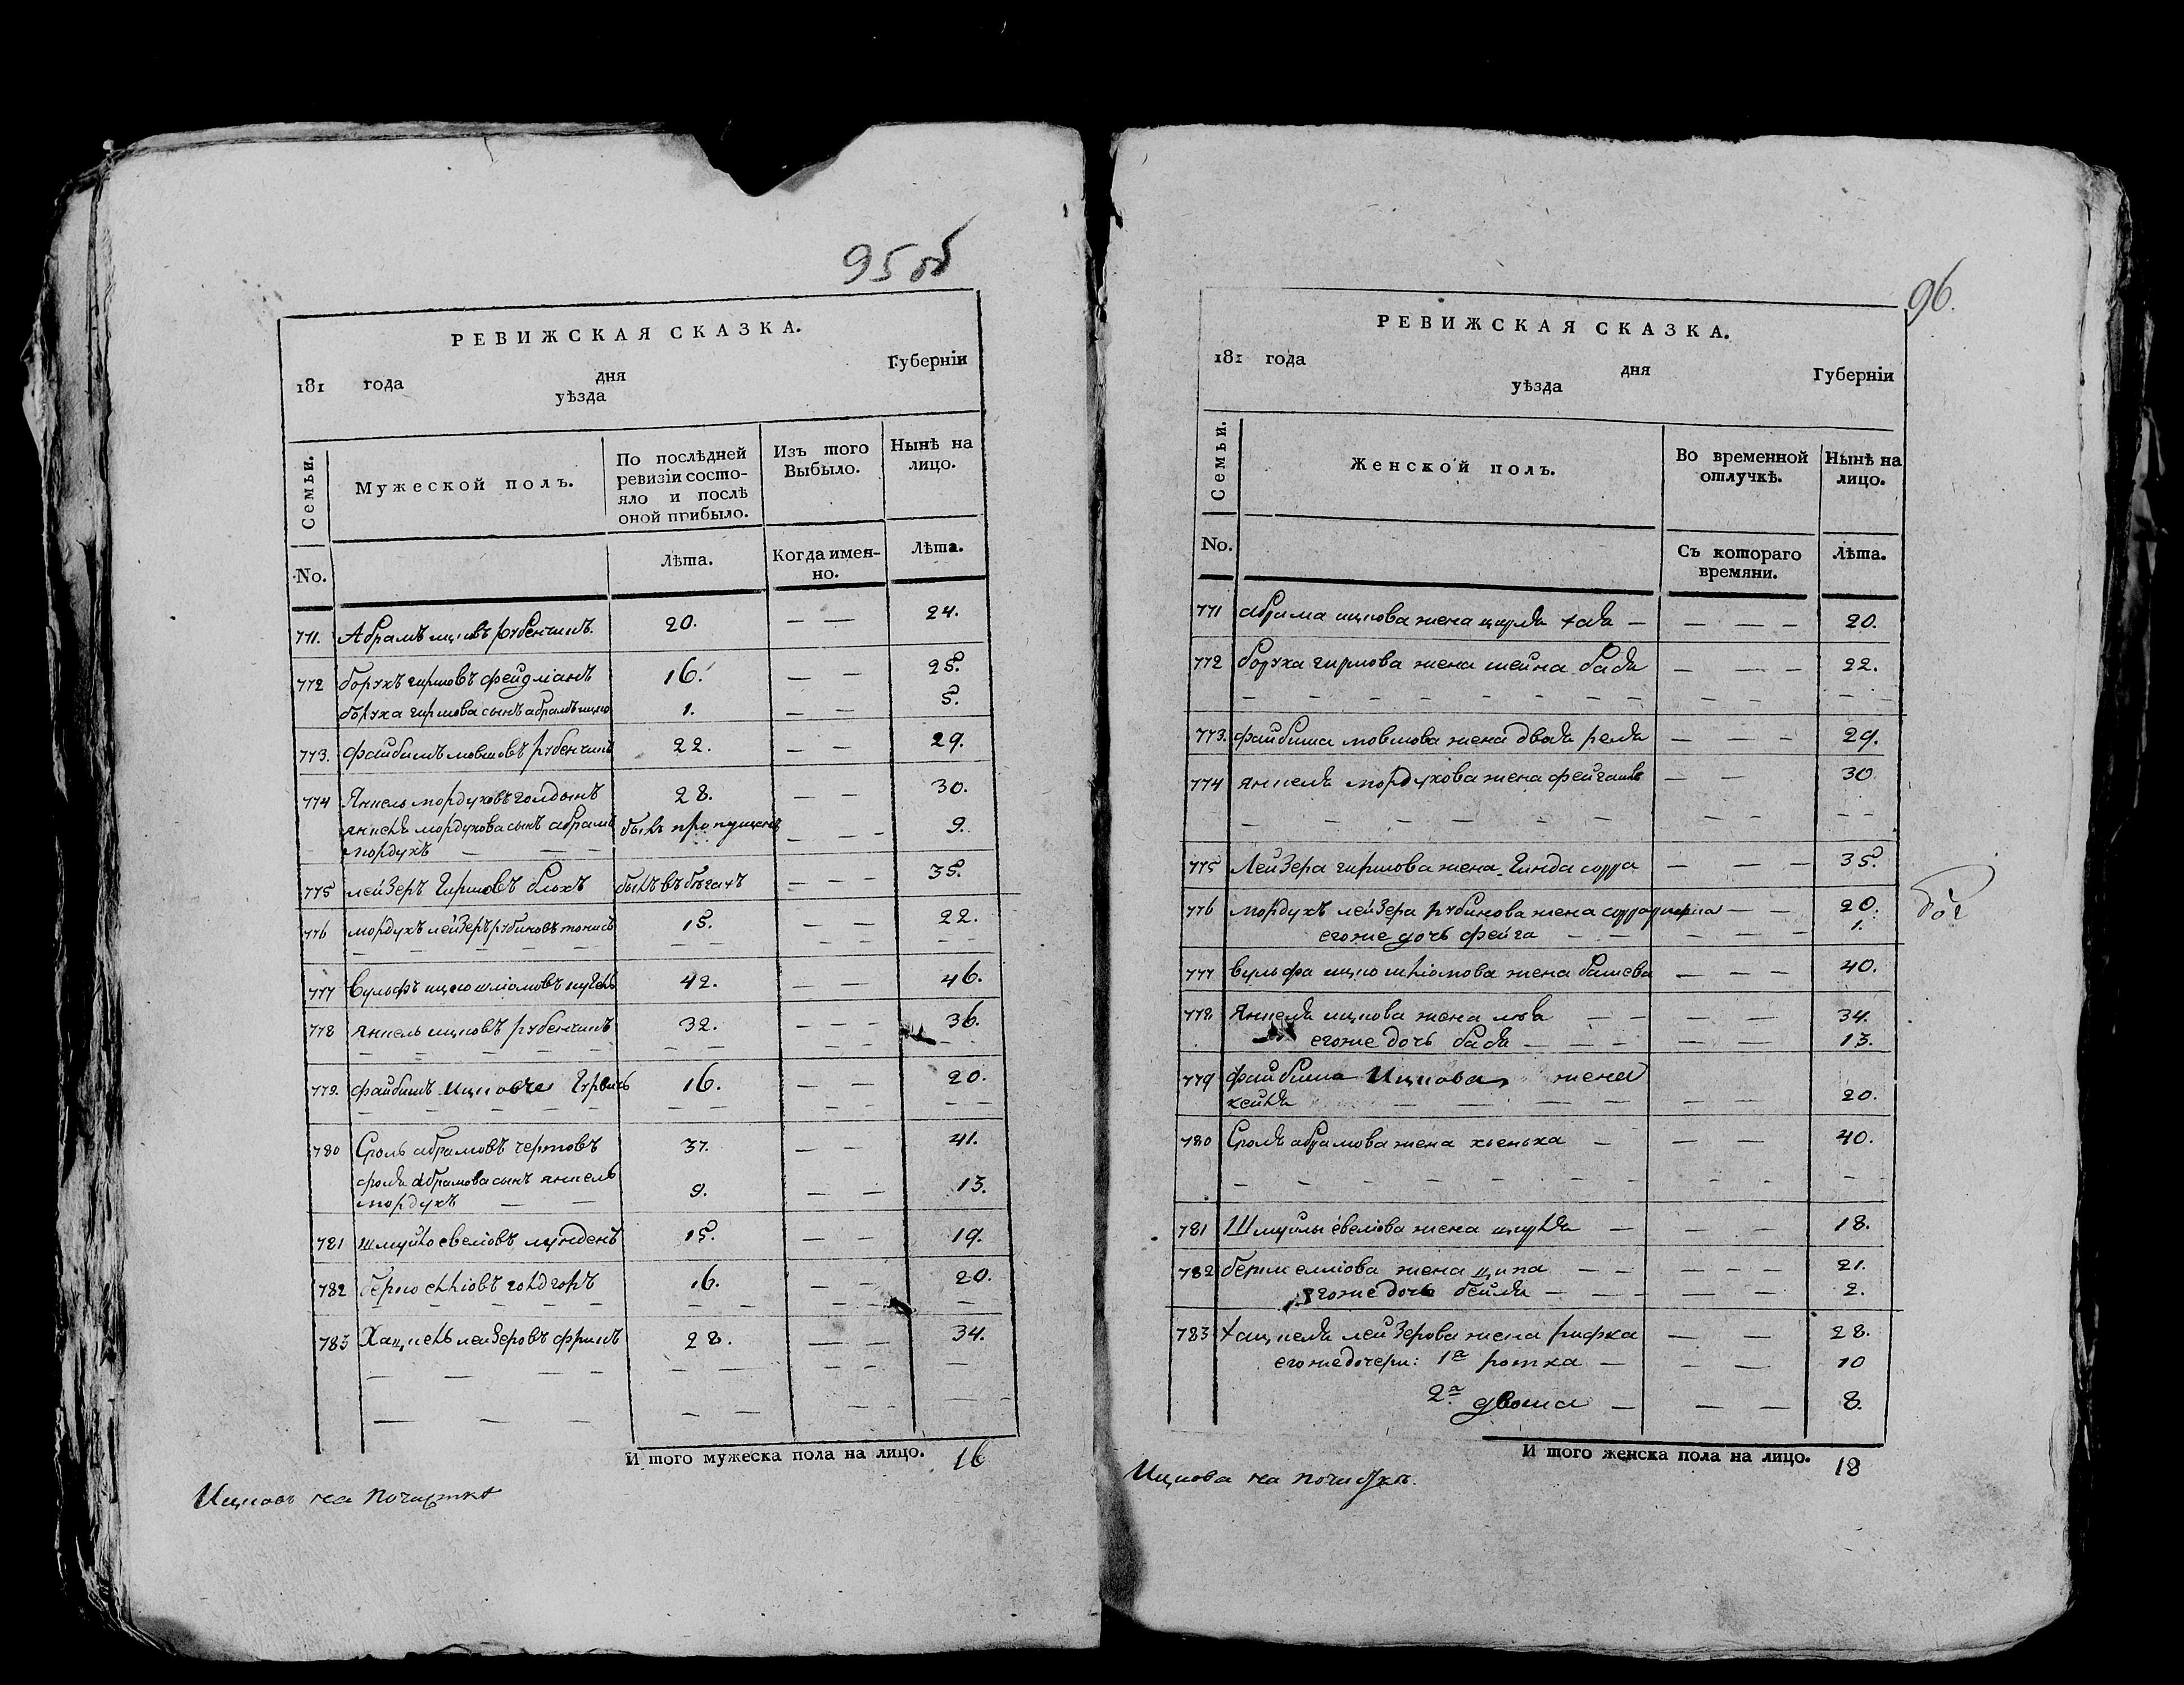 95 об
РЕВИЖСКАЯ СКАЗКА.
181 года дня Губерніи
уѣзда
Семьи.
Мужеской полъ.
По послѣдней ревизіи состояло и послѣ оной прибыло.
Изъ того Выбыло.
Нынѣ на лицо.
No.
Лѣта.
Когда именно.
Лѣта.
711. Абрамъ ицковъ рубенчикъ. 20. — — 24.
772 борухъ гиршовъ фейдманъ 16. — — 25.
боруха гиршова сынъ абрамъ ицко 1. — — 5.
773. файбишъ мовшовъ рубенчикъ 22. — — 29.
774 Янкель мордуховъ голдинъ 28. — — 30.
янкеля мордухова сынъ абрамъ былъ пропущенъ — — 9.
мордухъ —
775 лейзеръ Гиршовъ блохъ былъ въ бѣгахъ — — — 35.
776 мордухъ лейзеръ рубиновъ 15. — — 22.
777 Вульфъ ицко шліомовъ 42. — — 46.
778 янкель ицковъ рубенчикъ 32. — — — 36.
779. файбишъ Ицковъ Гурвичъ 16. — — 20.
780 Сроль абрамовъ чертовъ 37. — — 41.
сроля абрамова сынъ янкель 9. — — 13.
мордухъ —
781 шмуйло евеліовъ 15. — — 19.
782 берко елліовъ 16. — — 20.
783 Хацкель лейзеровъ фришъ 28. — — 34.
И того мужеска пола на лицо. 16
Ицковъ на почисткѣ
96.
РЕВИЖСКАЯ СКАЗКА.
181 года дня Губерніи
уѣзда
Семьи.
Женской полъ.
Во временной отлучкѣ.
Нынѣ на лицо.
No.
Съ котораго времяни.
Лѣта.
771 абрама ицкова жена цирля хая — — — — 20.
772 боруха гиршова жена шейна бася — — — 22.
773. файбиша мовшова жена двося реля — — — 29.
774 янкеля мордухова жена фейга — — 30.
775 Лейзера гиршова жена Гинда сорра — — — 35.
776 мордухъ лейзера рубинова жена сорра — — 20.
егоже дочь фейга — — — — — 1.
777 вульфа ицко шліомова жена башева — — — 40.
778 Янкеля ицкова жена — — — — 34.
егоже дочь бася — — — — — 13.
779 файбиша Ицкова жена
кейля — — — — — — 20.
780 Сроля абрамова жена хьенька — — — 40.
781 Шмуйлы евеліова жена — — — 18.
782 берки елліова жена ципа — — — — — 21.
егоже дочь бейля — — — — — 2.
783 хацкеля лейзерова жена рифка — — 28.
егоже дочери: 1я ротка — — — 10
2я двоша — — — 8.
И того женска пола на лицо. 18
Ицкова на почисткѣ.